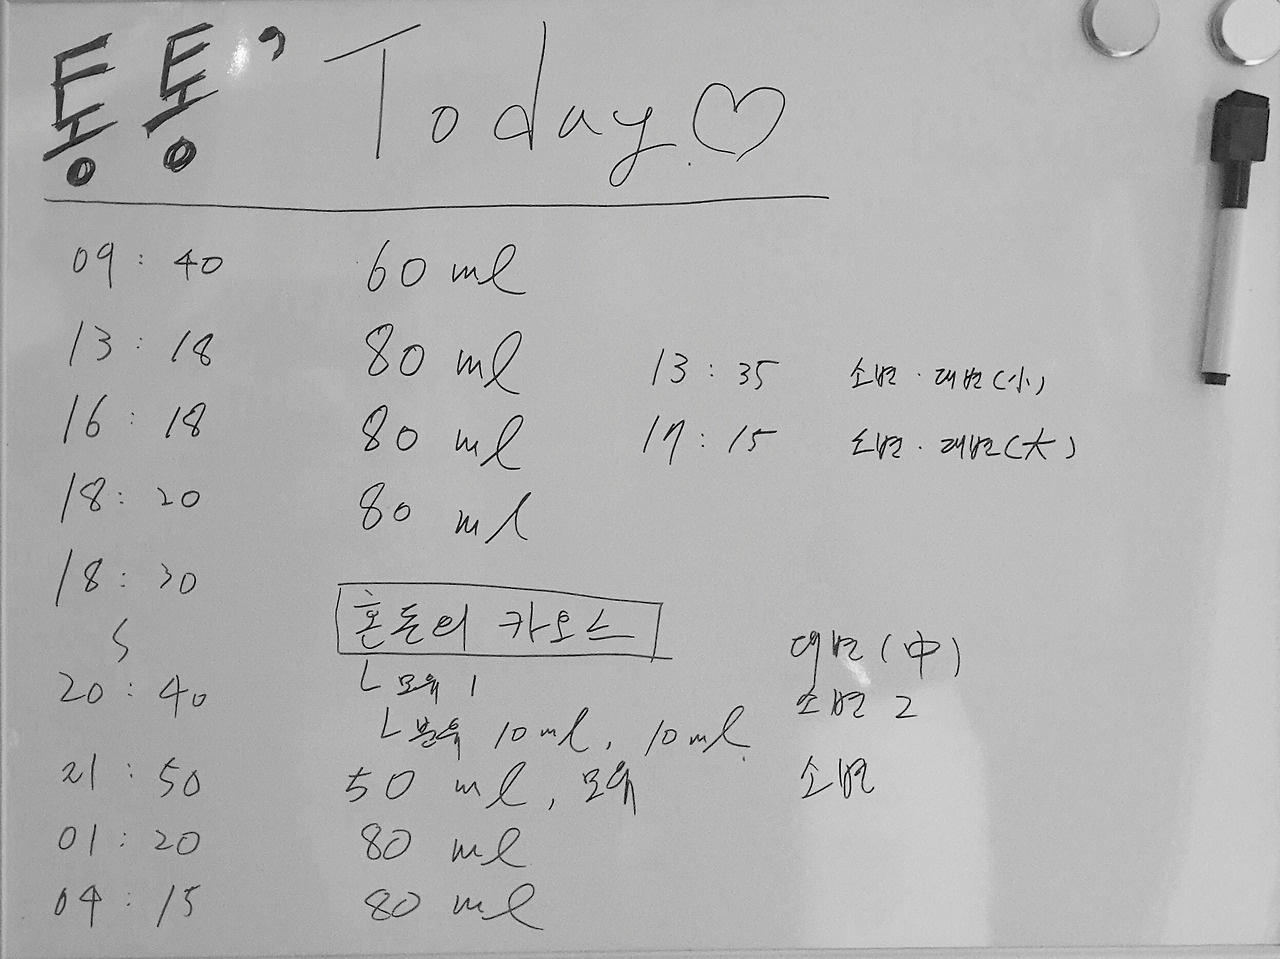 통통' Today♡
09:40 60ml
13:18 80ml 13:35 소변·대변(小)
16:18 80ml 17:15 소변·대변(大)
18:20 80ml
18:30
S
20:40
혼돈의 카오스
ㄴ모유 1
ㄴ분유 10ml, 10ml
대변(中)
소변 2
21:50 50ml, 모유 소변
01:20 80ml
04:15 80ml